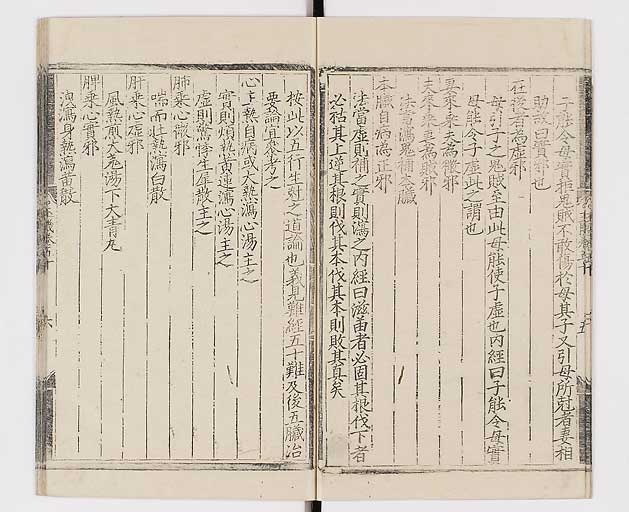 子能令母實拒鬼賊不敢傷於母其子又引母所剋者妻相
助故曰實邪也
在後者為虛邪
母引子之鬼賊至由此母能使子虛也內經曰子能令母實
母能令子虛此之謂也
妻來乘夫為微邪
夫來乘妻為賊邪
法當瀉鬼補本臟
本臟自病為正邪
法當虛則補之實則瀉之內經曰滋苗者必固其根伐下者
必枯其上逆其根則伐其本伐其本則敗其真矣
按此以五行生尅之道論也義見難經五十難及後五臟治
要論宜參考之
心主熱自病或大熱瀉心湯主之
實則煩熱黃連瀉心湯主之
虛則驚悸生犀散主之
肺乘心微邪
喘而壯熱瀉白散
肝乘心虛邪
風熱煎大羌湯下大青丸
脾乘心實邪
洩瀉身熱瀉黃散